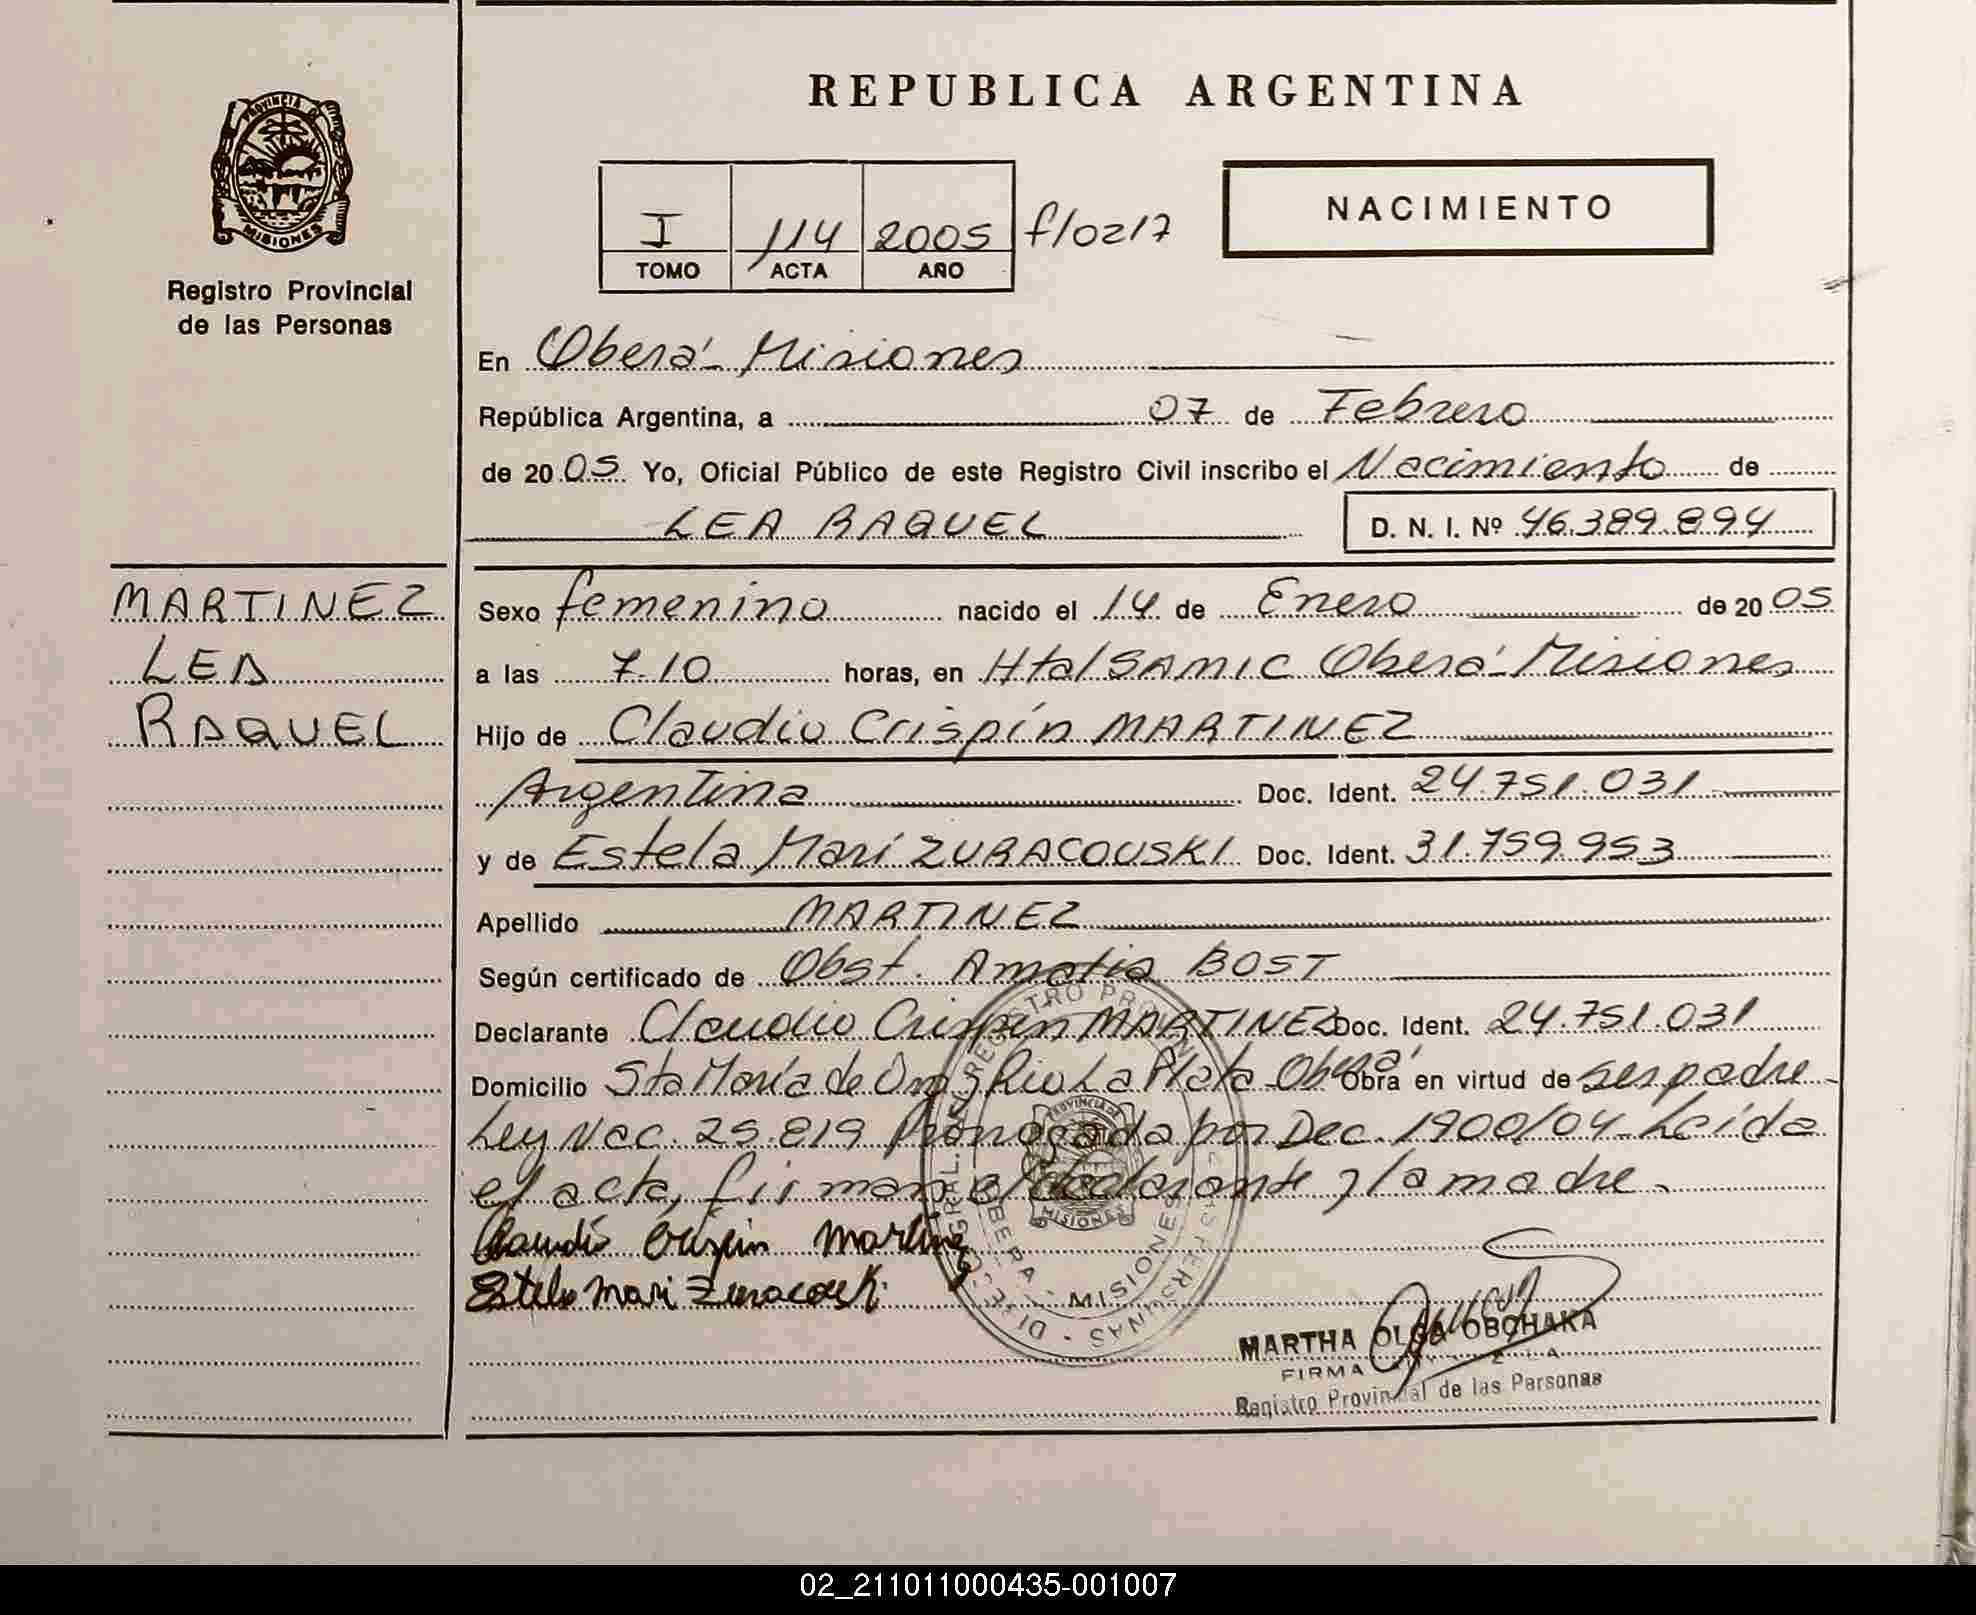 REPUBLICA ARGENTINA
PROVINCIA DE
MISIONES
Registro Provincial
de las Personas
I 114 2005 f/0217
TOMO ACTA AÑO
NACIMIENTO
En Oberá - Misiones
República Argentina, a 07 de Febrero
de 2005 Yo, Oficial Público de este Registro Civil inscribo el Nacimiento de
LEA RAQUEL D. N. I. Nº 46.389.894
MARTINEZ
LEA
RAQUEL
Sexo femenino nacido el 14 de Enero de 2005
a las 7.10 horas, en Htal SAMIC Oberá - Misiones
Hijo de Claudio Crispín MARTINEZ
Argentina Doc. Ident. 24.751.031
y de Estela Mari ZURACOUSKI Doc. Ident. 31.759.953
Apellido MARTINEZ
Según certificado de Obst. Amatia BOST
Declarante Claudio Crispín MARTINEZ Doc. Ident. 24.751.031
Domicilio Sta María de Oro y Rio La Plata Oberá Obra en virtud de ser padre
Ley Nac. 25.819 Prorrogada por Dec. 1900/04 - Leída
el acta, firman el declarante y la madre.
Claudio Crispin Martinez
Estela Mari Zuracouski
MARTHA OLGA OBCHAKA
FIRMA
Registro Provincial de las Personas
PROVINCIA DE
MISIONES
OBERA - MISIONES
02_211011000435-001007